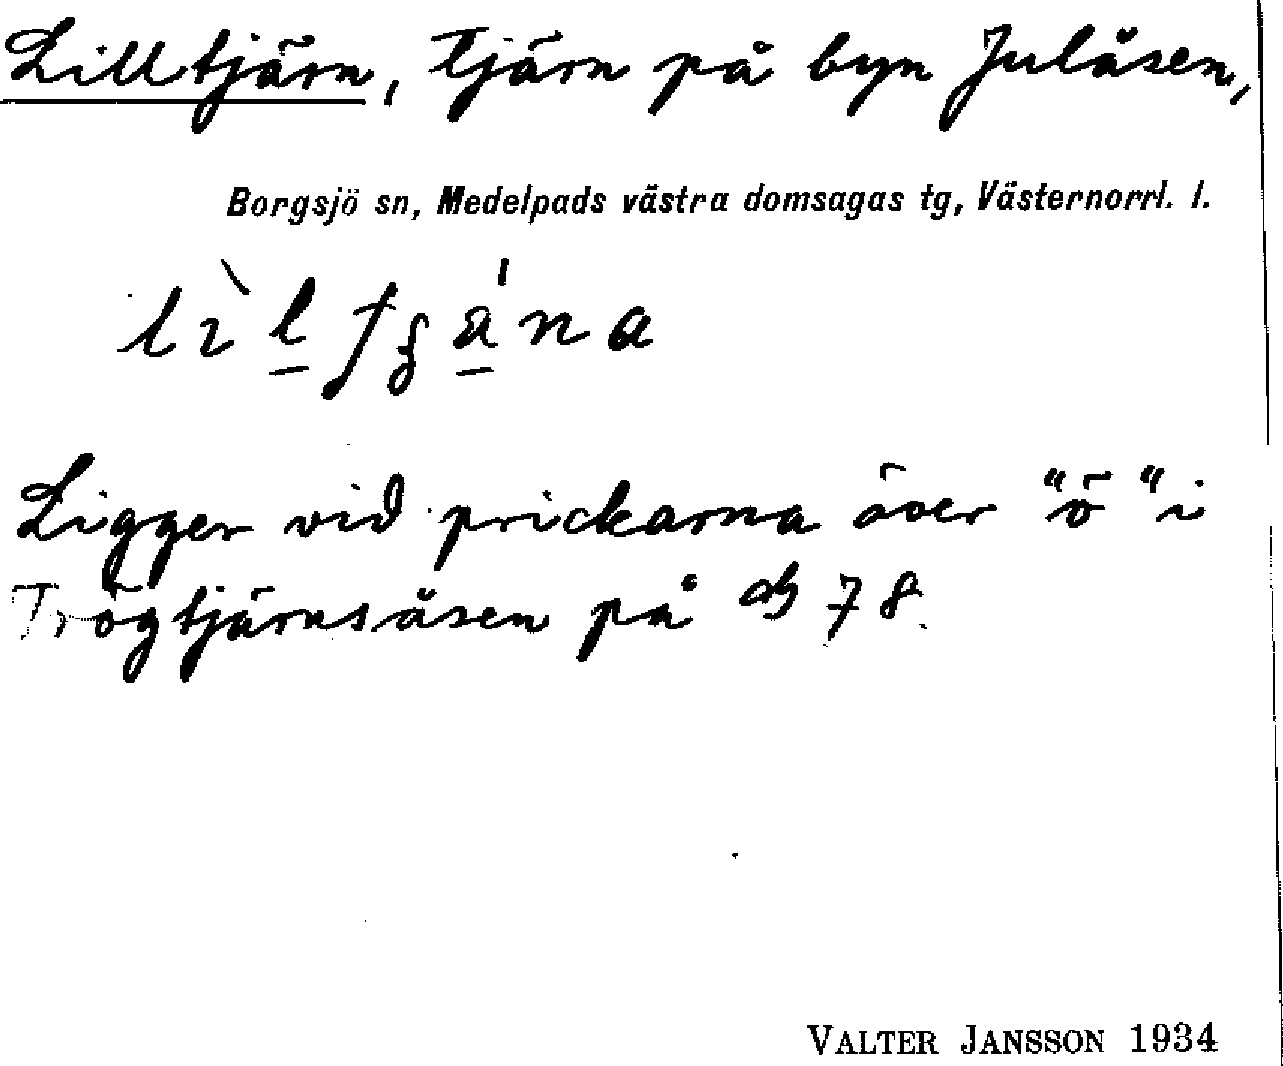 Lilltjärn, tjärn på byn Julåsen,
Borgsjö sn, Medelpads västra domsagas tg, Västernorrl. l.
Ligger vid prickarna över "ö" i
Trögtjärnsåsen på db 78.
VALTER JANSSON 1934